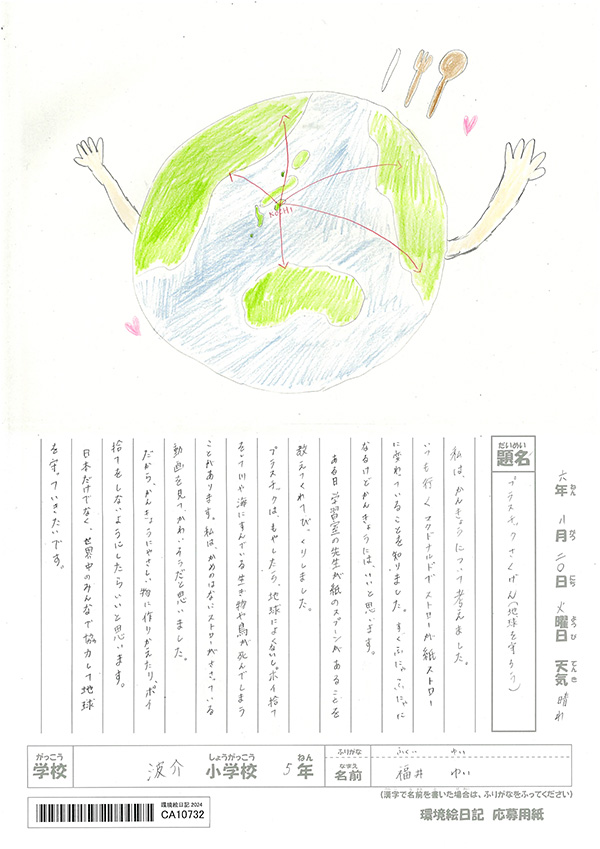 KOCHI
六年 八月 二〇日 火曜日 天気 晴れ
ねん がつ にち ようび てんき
だいめい
題名
プラスチックさくげん(地球を守ろう)
私は、かんきょうについて考えました。
いつも行くマクドナルドでストローが紙ストロー
に変わっていることを知りました。すぐふにゃふにゃに
なるけどかんきょうには、いいと思います。
ある日学習室の先生が紙のスプーンがあることを
教えてくれてびっくりしました。
プラスチックは、もやしたら、地球によくないし。ポイ捨て
をして川や海にすんでいる生き物や鳥が死んでしまう
ことがあります。私は、かめのはなにストローがささっている
動画を見て、かわいそうだと思いました。
だから、かんきょうにやさしい物に作りかえたり、ポイ
捨てをしないようにしたらいいと思います。
日本だけでなく、世界中のみんなで協力して地球
を守っていきたいです。
がっこう
学校
波介
しょうがっこう
小学校
5
ねん
年
ふりがな
ふくい ゆい
なまえ
名前
福井 ゆい
(漢字で名前を書いた場合は、ふりがなをふってください)
環境絵日記 2024
CA10732
環境絵日記 応募用紙